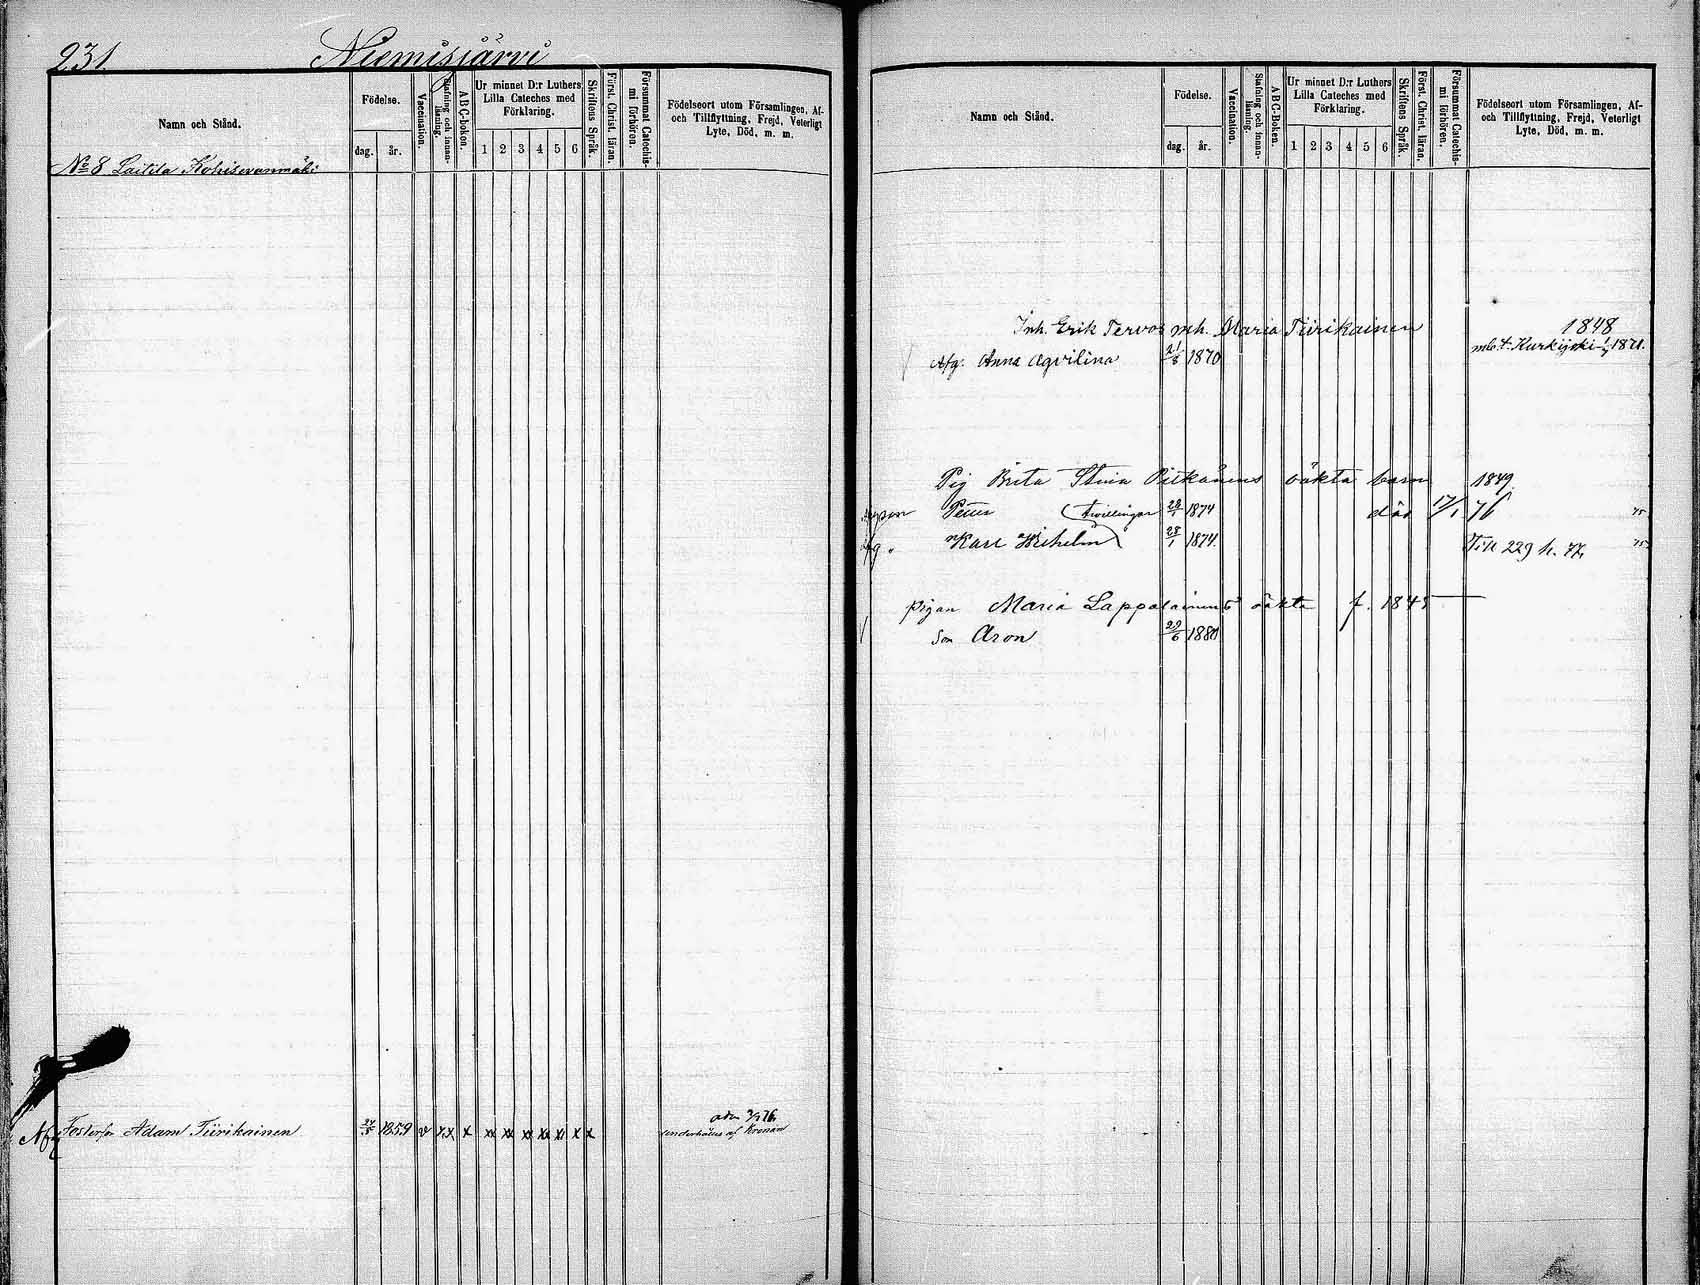 231.
Niemisjärvi
Namn och Stånd.
Födelse.
dag. år.
Vaccination.
Stafning och innan-läsning.
A B C-boken.
Ur minnet D:r Luthers
Lilla Cateches med
Förklaring.
1 2 3 4 5 6
Skriftens Språk.
Först. Christ. läran.
Försummat Catechis-mi förhören.
Födelseort utom Församlingen, Af-
och Tillflyttning, Frejd, Veterligt
Lyte, Död, m. m.
No 8 Laitila Kohisevanmäki
Afg Adam Tiirikainen 24/5 1859 v x x x xx xx xx xx xx x x
underhålles af Kronan
Namn och Stånd.
Födelse.
dag. år.
Vaccination.
Stafning och innan-läsning.
A B C-Boken.
Ur minnet D:r Luthers
Lilla Cateches med
Förklaring.
1 2 3 4 5 6
Skriftens Språk.
Först. Christ. läran.
Försummat Catechis-mi förhören.
Födelseort utom Församlingen, Af-
och Tillflyttning, Frejd, Veterligt
Lyte, Död, m. m.
Inh. Erik Tervos och. Maria Tiirikainen 1848
Afg. Anna Aqvilina 21/8 1870 Kurkijoki 1/7 1871.
Pig Brita Stina Pitkänens oäkta barn 1849
Petter (tvillingar 28/1 1874 död 17/1 76 75
Karl Wilhelm 28/1 1874. Till 229 h. 77, 75
Pigan Maria Lappalainens oäkta f. 1845
Son Aron 29/6 1880